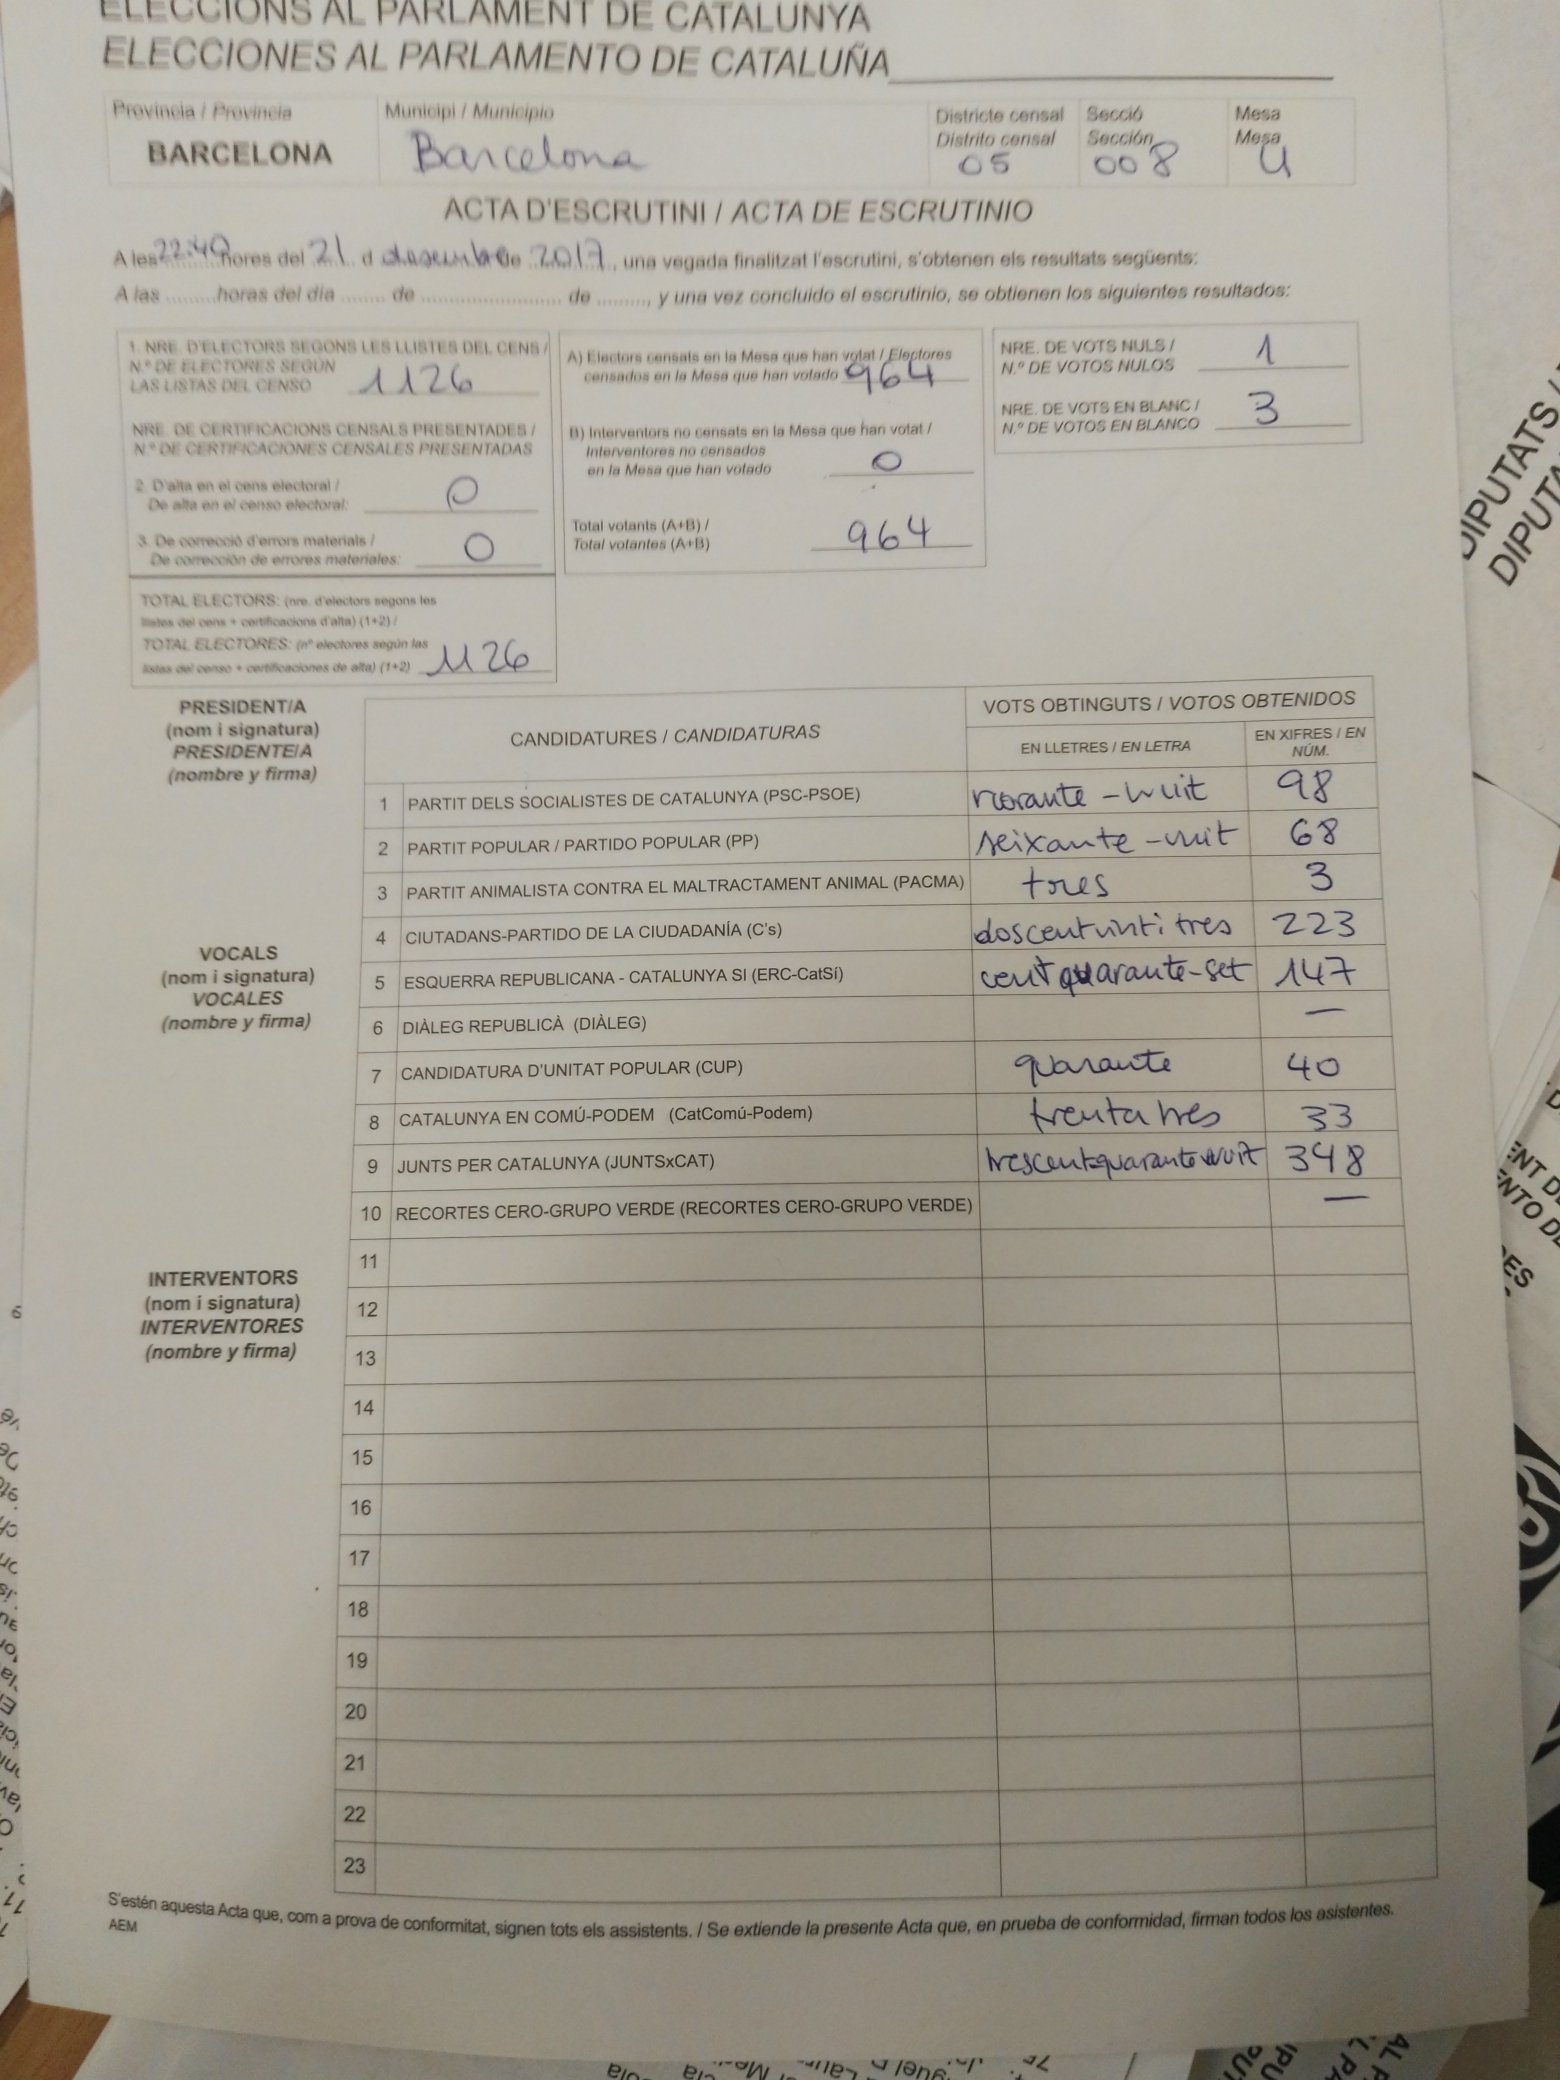 ELECCIONS AL PARLAMENT DE CATALUNYA
ELECCIONES AL PARLAMENTO DE CATALUÑA
Província / Provincia
BARCELONA
Municipi / Municipio
Barcelona
Districte censal
Distrito censal
05
Secció
Sección
008
Mesa
Mesa
U
ACTA D'ESCRUTINI / ACTA DE ESCRUTINIO
A les 22:40 hores del 21 d desembre de 2017, una vegada finalitzat l'escrutini, s'obtenen els resultats següents:
A las ........ horas del día ........ de ........................ de ........., y una vez concluido el escrutinio, se obtienen los siguientes resultados:
1. NRE. D'ELECTORS SEGONS LES LLISTES DEL CENS /
N.º DE ELECTORES SEGÚN
LAS LISTAS DEL CENSO 1126
NRE. DE CERTIFICACIONS CENSALS PRESENTADES /
N.º DE CERTIFICACIONES CENSALES PRESENTADAS
2. D'alta en el cens electoral /
De alta en el censo electoral: 0
3. De correcció d'errors materials /
De corrección de errores materiales: 0
TOTAL ELECTORS: (nre. d'electors segons les
llistes del cens + certificacions d'alta) (1+2) /
TOTAL ELECTORES: (nº electores según las
listas del censo + certificaciones de alta) (1+2) 1126
A) Electors censats en la Mesa que han votat / Electores
censados en la Mesa que han votado 964
B) Interventors no censats en la Mesa que han votat /
Interventores no censados
en la Mesa que han votado 0
Total votants (A+B) /
Total votantes (A+B) 964
NRE. DE VOTS NULS /
N.º DE VOTOS NULOS 1
NRE. DE VOTS EN BLANC /
N.º DE VOTOS EN BLANCO 3
PRESIDENT/A
(nom i signatura)
PRESIDENTE/A
(nombre y firma)
VOCALS
(nom i signatura)
VOCALES
(nombre y firma)
INTERVENTORS
(nom i signatura)
INTERVENTORES
(nombre y firma)
CANDIDATURES / CANDIDATURAS
VOTS OBTINGUTS / VOTOS OBTENIDOS
EN LLETRES / EN LETRA
EN XIFRES / EN
NÚM.
1 PARTIT DELS SOCIALISTES DE CATALUNYA (PSC-PSOE) norante-vuit 98
2 PARTIT POPULAR / PARTIDO POPULAR (PP) seixante-vuit 68
3 PARTIT ANIMALISTA CONTRA EL MALTRACTAMENT ANIMAL (PACMA) tres 3
4 CIUTADANS-PARTIDO DE LA CIUDADANÍA (C's) doscentvinti tres 223
5 ESQUERRA REPUBLICANA - CATALUNYA SI (ERC-CatSí) cent quarante-set 147
6 DIÀLEG REPUBLICÀ (DIÀLEG) —
7 CANDIDATURA D'UNITAT POPULAR (CUP) quarante 40
8 CATALUNYA EN COMÚ-PODEM (CatComú-Podem) trenta tres 33
9 JUNTS PER CATALUNYA (JUNTSxCAT) trescentsquarantevuit 348
10 RECORTES CERO-GRUPO VERDE (RECORTES CERO-GRUPO VERDE) —
11
12
13
14
15
16
17
18
19
20
21
22
23
S'estén aquesta Acta que, com a prova de conformitat, signen tots els assistents. / Se extiende la presente Acta que, en prueba de conformidad, firman todos los asistentes.
AEM
DIPUTATS /